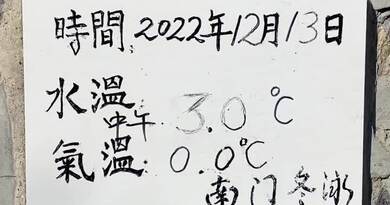 時間:2022年12月13日
水溫 中午 3.0℃
氣溫: 0.0℃
南门冬泳